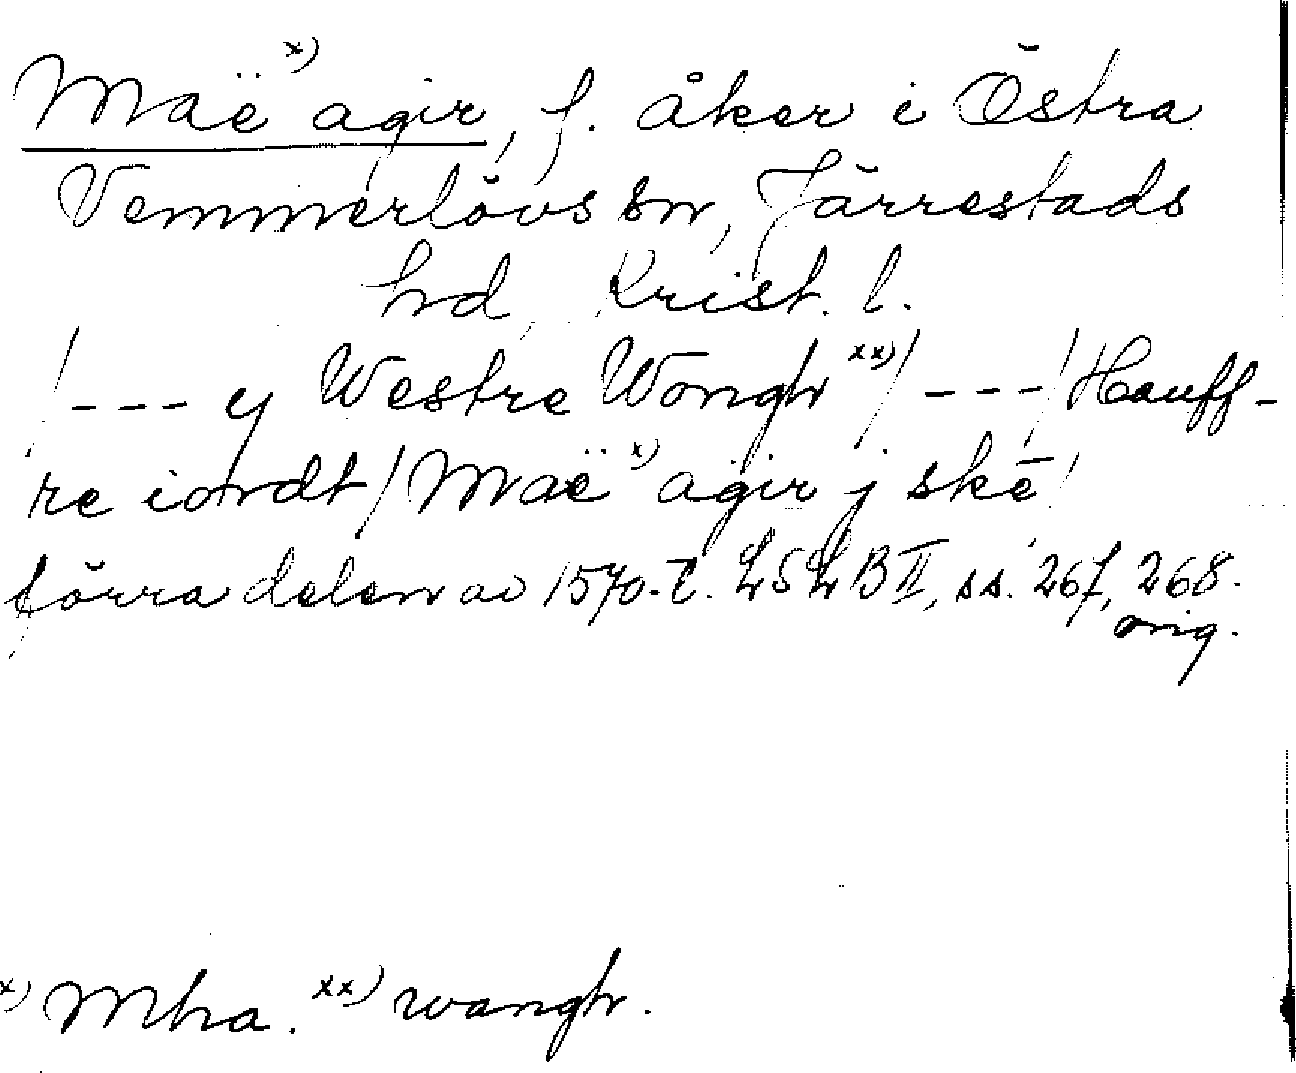 Maë x) agir, f. åker i Östra
Vemmerlövs sn, Järrestads
hd, Krist. l.
/--- y Westre Wongh xx)/---/ Hauff-
re iordt/ Maë x) agir j skē!
förra delen av 1570-t. LSLB II, ss. 267, 268.
orig.
x) Mha. xx) wangh.